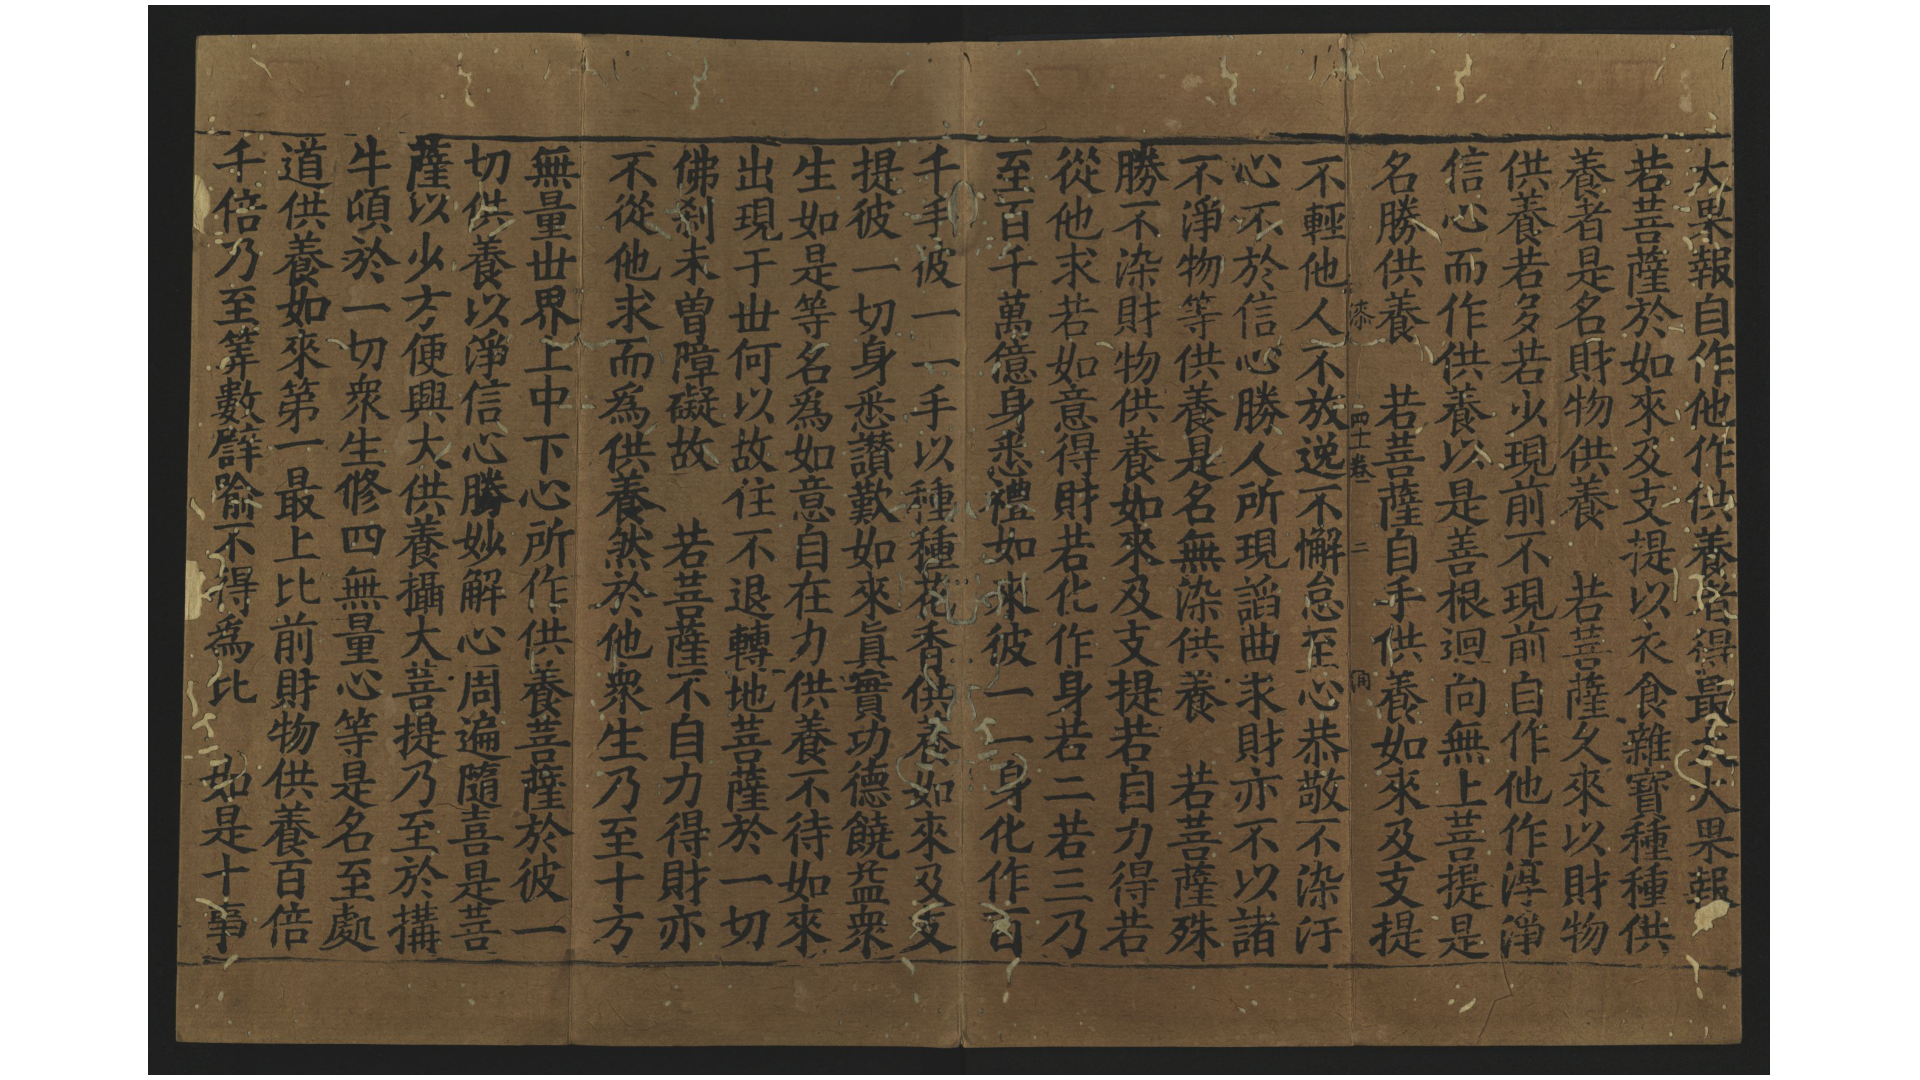 大果報自作他作供養者得最大大果報
若菩薩於如來及支提以衣食雜寶種種供
養者是名財物供養　若菩薩久來以財物
供養若多若少現前不現前自作他作淳淨
信心而作供養以是善根迴向無上菩提是
名勝供養　若菩薩自手供養如來及支提
漆　四十二卷　二
不輕他人不放逸不懈怠至心恭敬不染汙
心不於信心勝人所現諂曲求財亦不以諸
不淨物等供養是名無染供養　若菩薩殊
勝不染財物供養如來及支提若自力得若
從他求若如意得財若化作身若二若三乃
至百千萬億身悉禮如來彼一一身化作百
千手彼一一手以種種花香供養如來及支
提彼一切身悉讃歎如來真實功德饒益衆
生如是等名爲如意自在力供養不待如來
出現于世何以故住不退轉地菩薩於一切
佛刹未曾障礙故　若菩薩不自力得財亦
不從他求而爲供養然於他衆生乃至十方
無量世界上中下心所作供養菩薩於彼一
切供養以淨信心勝妙解心周遍隨喜是菩
薩以少方便興大供養攝大菩提乃至於搆
牛頃於一切衆生修四無量心等是名至處
道供養如來第一最上比前財物供養百倍
千倍乃至筭數譬喻不得爲比　如是十事